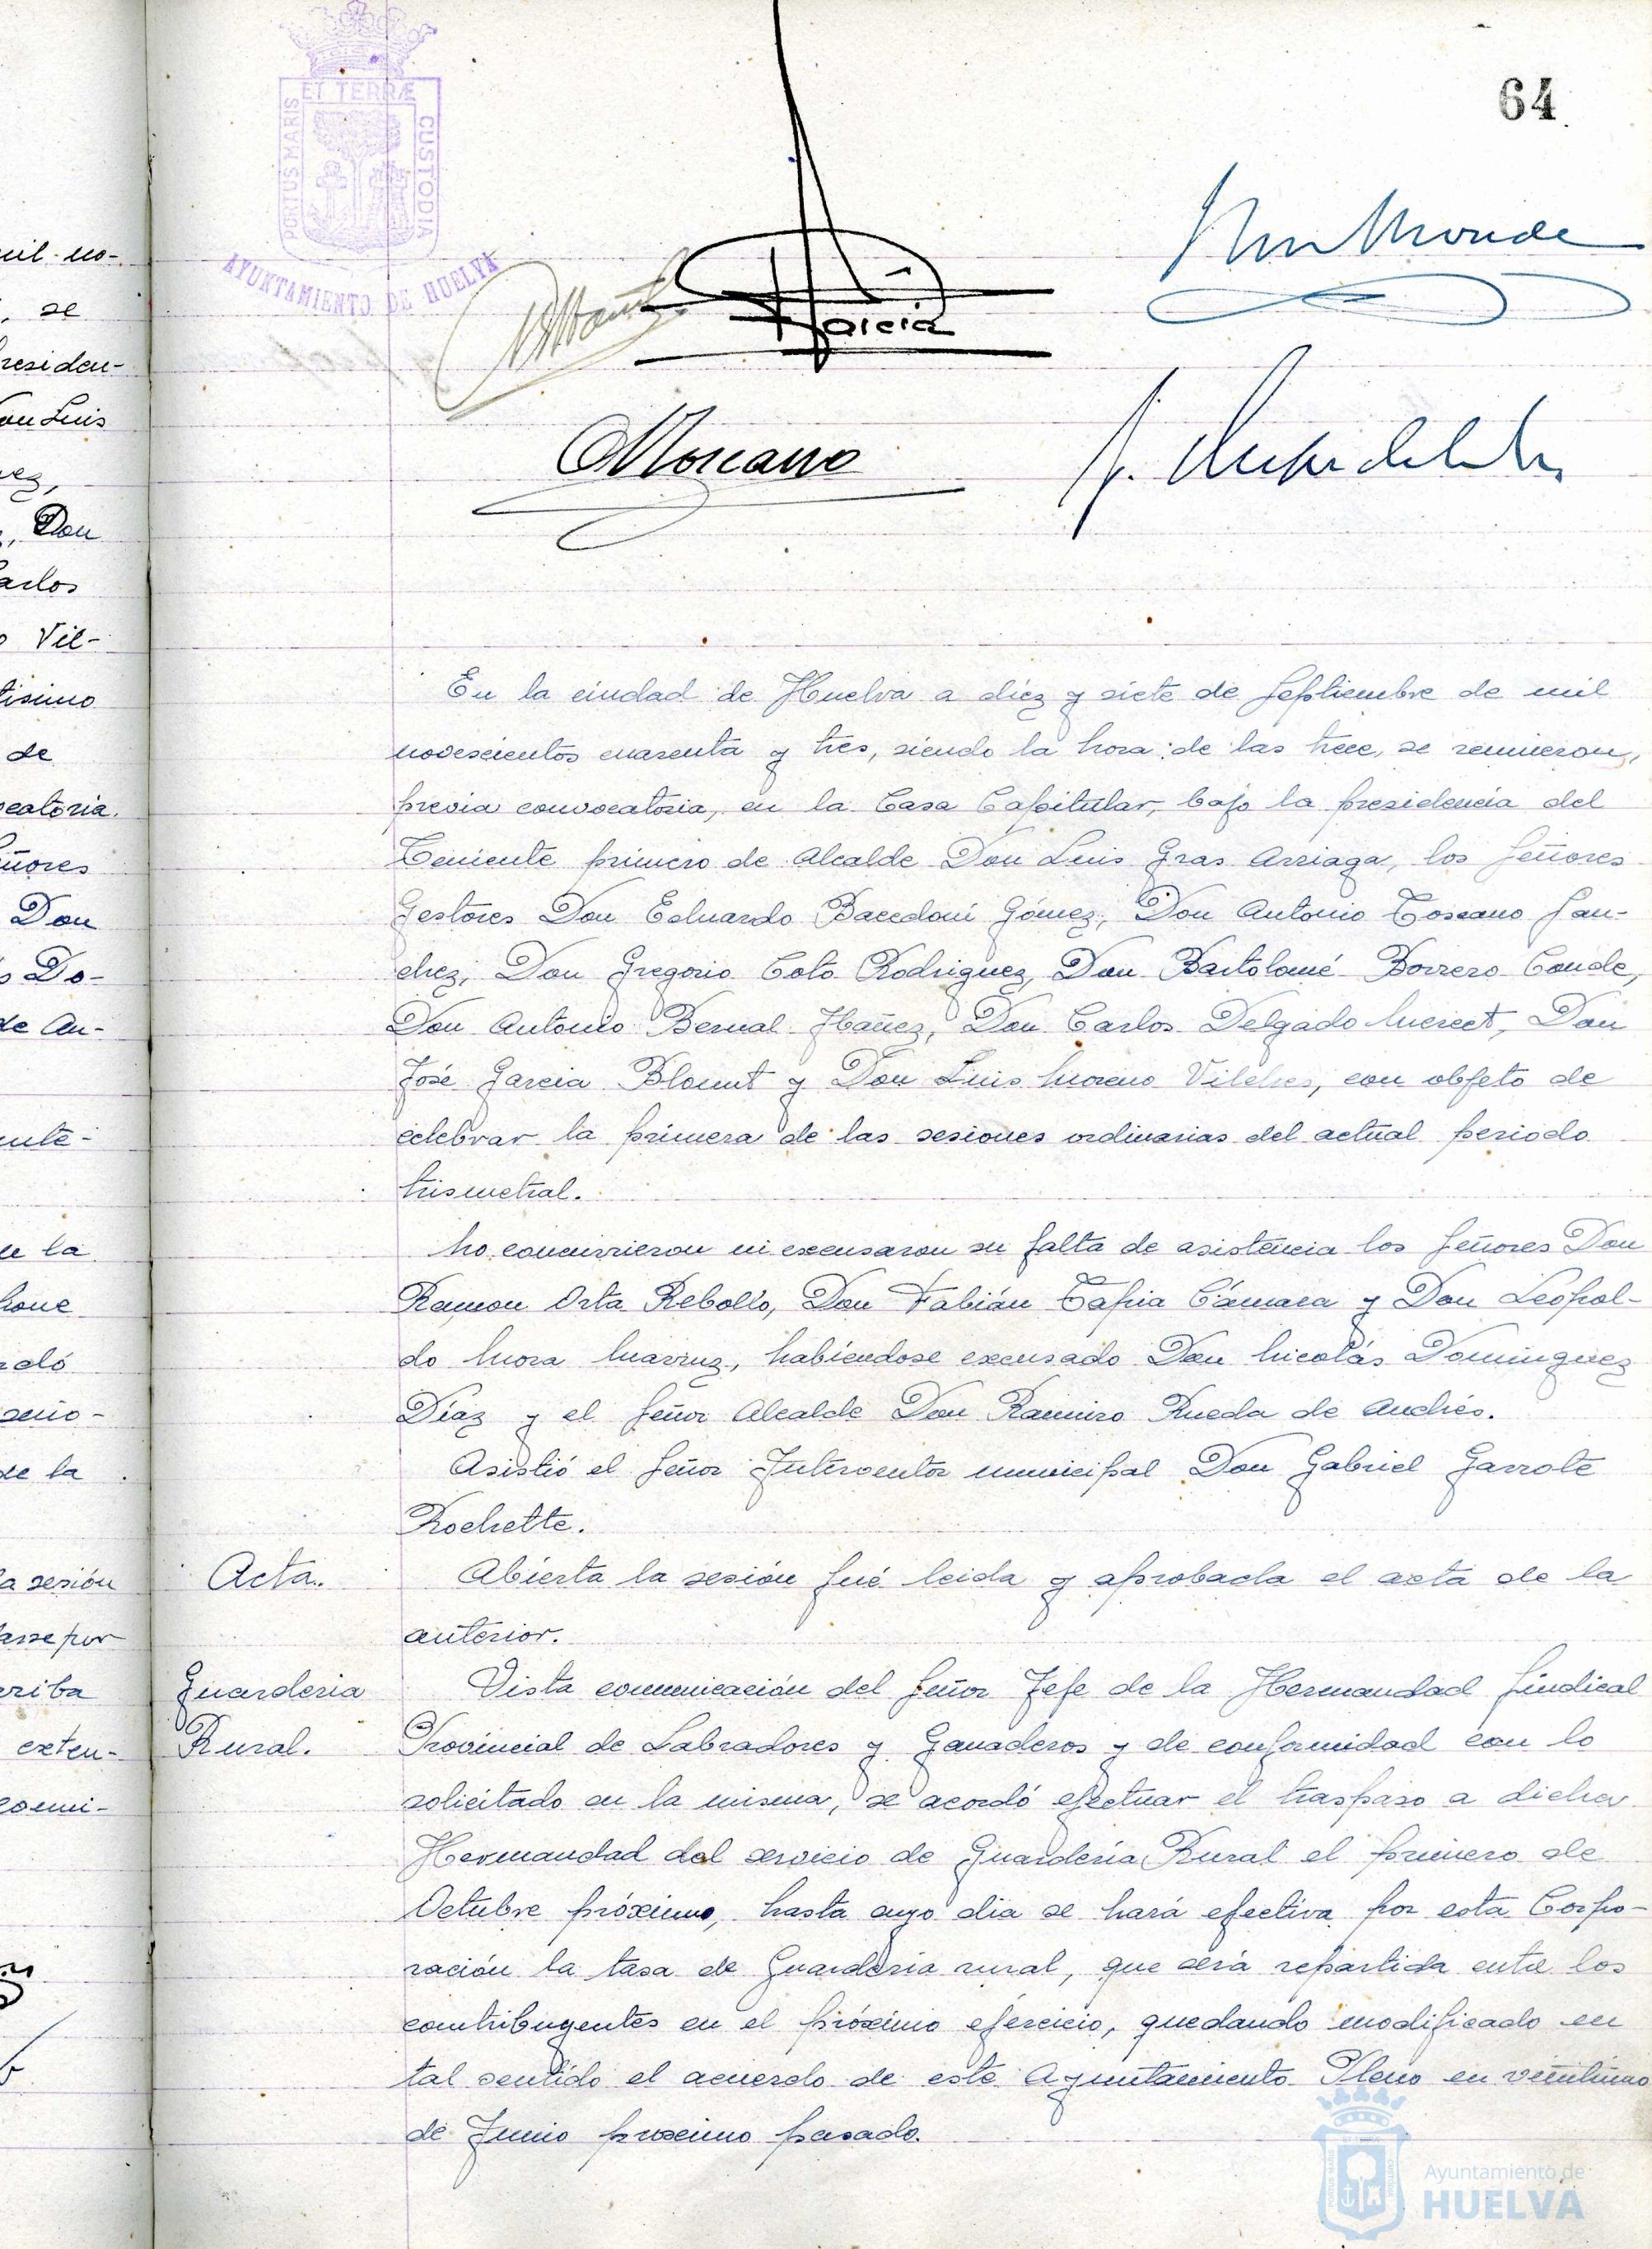 64
ET TERRÆ
PORTUS MARIS
CUSTODIA
AYUNTAMIENTO DE HUELVA
García
En la ciudad de Huelva a diez y siete de Septiembre de mil
novescientos cuarenta y tres, siendo la hora de las trece, se reunieron,
previa convocatoria, en la Casa Capitular, bajo la presidencia del
Teniente primero de Alcalde Don Luis Gras Arriaga, los Señores
Gestores Don Eduardo Bacedoni Gómez, Don Antonio Toscano San-
chez, Don Gregorio Coto Rodriguez, Don Bartolomé Borrero Conde,
Don Antonio Bernal Ibañez, Don Carlos Delgado Don
José Garcia Blount y Don Luis Moreno Vilches, con objeto de
celebrar la primera de las sesiones ordinarias del actual periodo
trismetral.
No concurrieron ni excusaron su falta de asistencia los Señores Don
Ramon Orta Rebollo, Don Fabián Tapia Cámara y Don Leopol-
do Mora habiendose excusado Don Nicolás Dominguez
Díaz y el Señor Alcalde Don Ramiro Rueda de Andrés.
Asistió el Señor Interventor municipal Don Gabriel Garrote
Rochette.
Acta.
Abierta la sesión fué leida y aprobada el acta de la
anterior.
Guarderia
Rural.
Vista comunicación del Señor Jefe de la Hermandad Sindical
Provincial de Labradores y Ganaderos y de conformidad con lo
solicitado en la misma, se acordó efectuar el traspaso a dicha
Hermandad del servicio de Guardería Rural el primero de
Octubre próximo, hasta cuyo dia se hará efectiva por esta Corpo-
ración la tasa de Guarderia rural, que será repartida entre los
contribuyentes en el próximo ejercicio, quedando modificado en
tal sentido el acuerdo de este Ayuntamiento Pleno en veintiuno
de Junio proximo pasado.
Ayuntamiento de
HUELVA